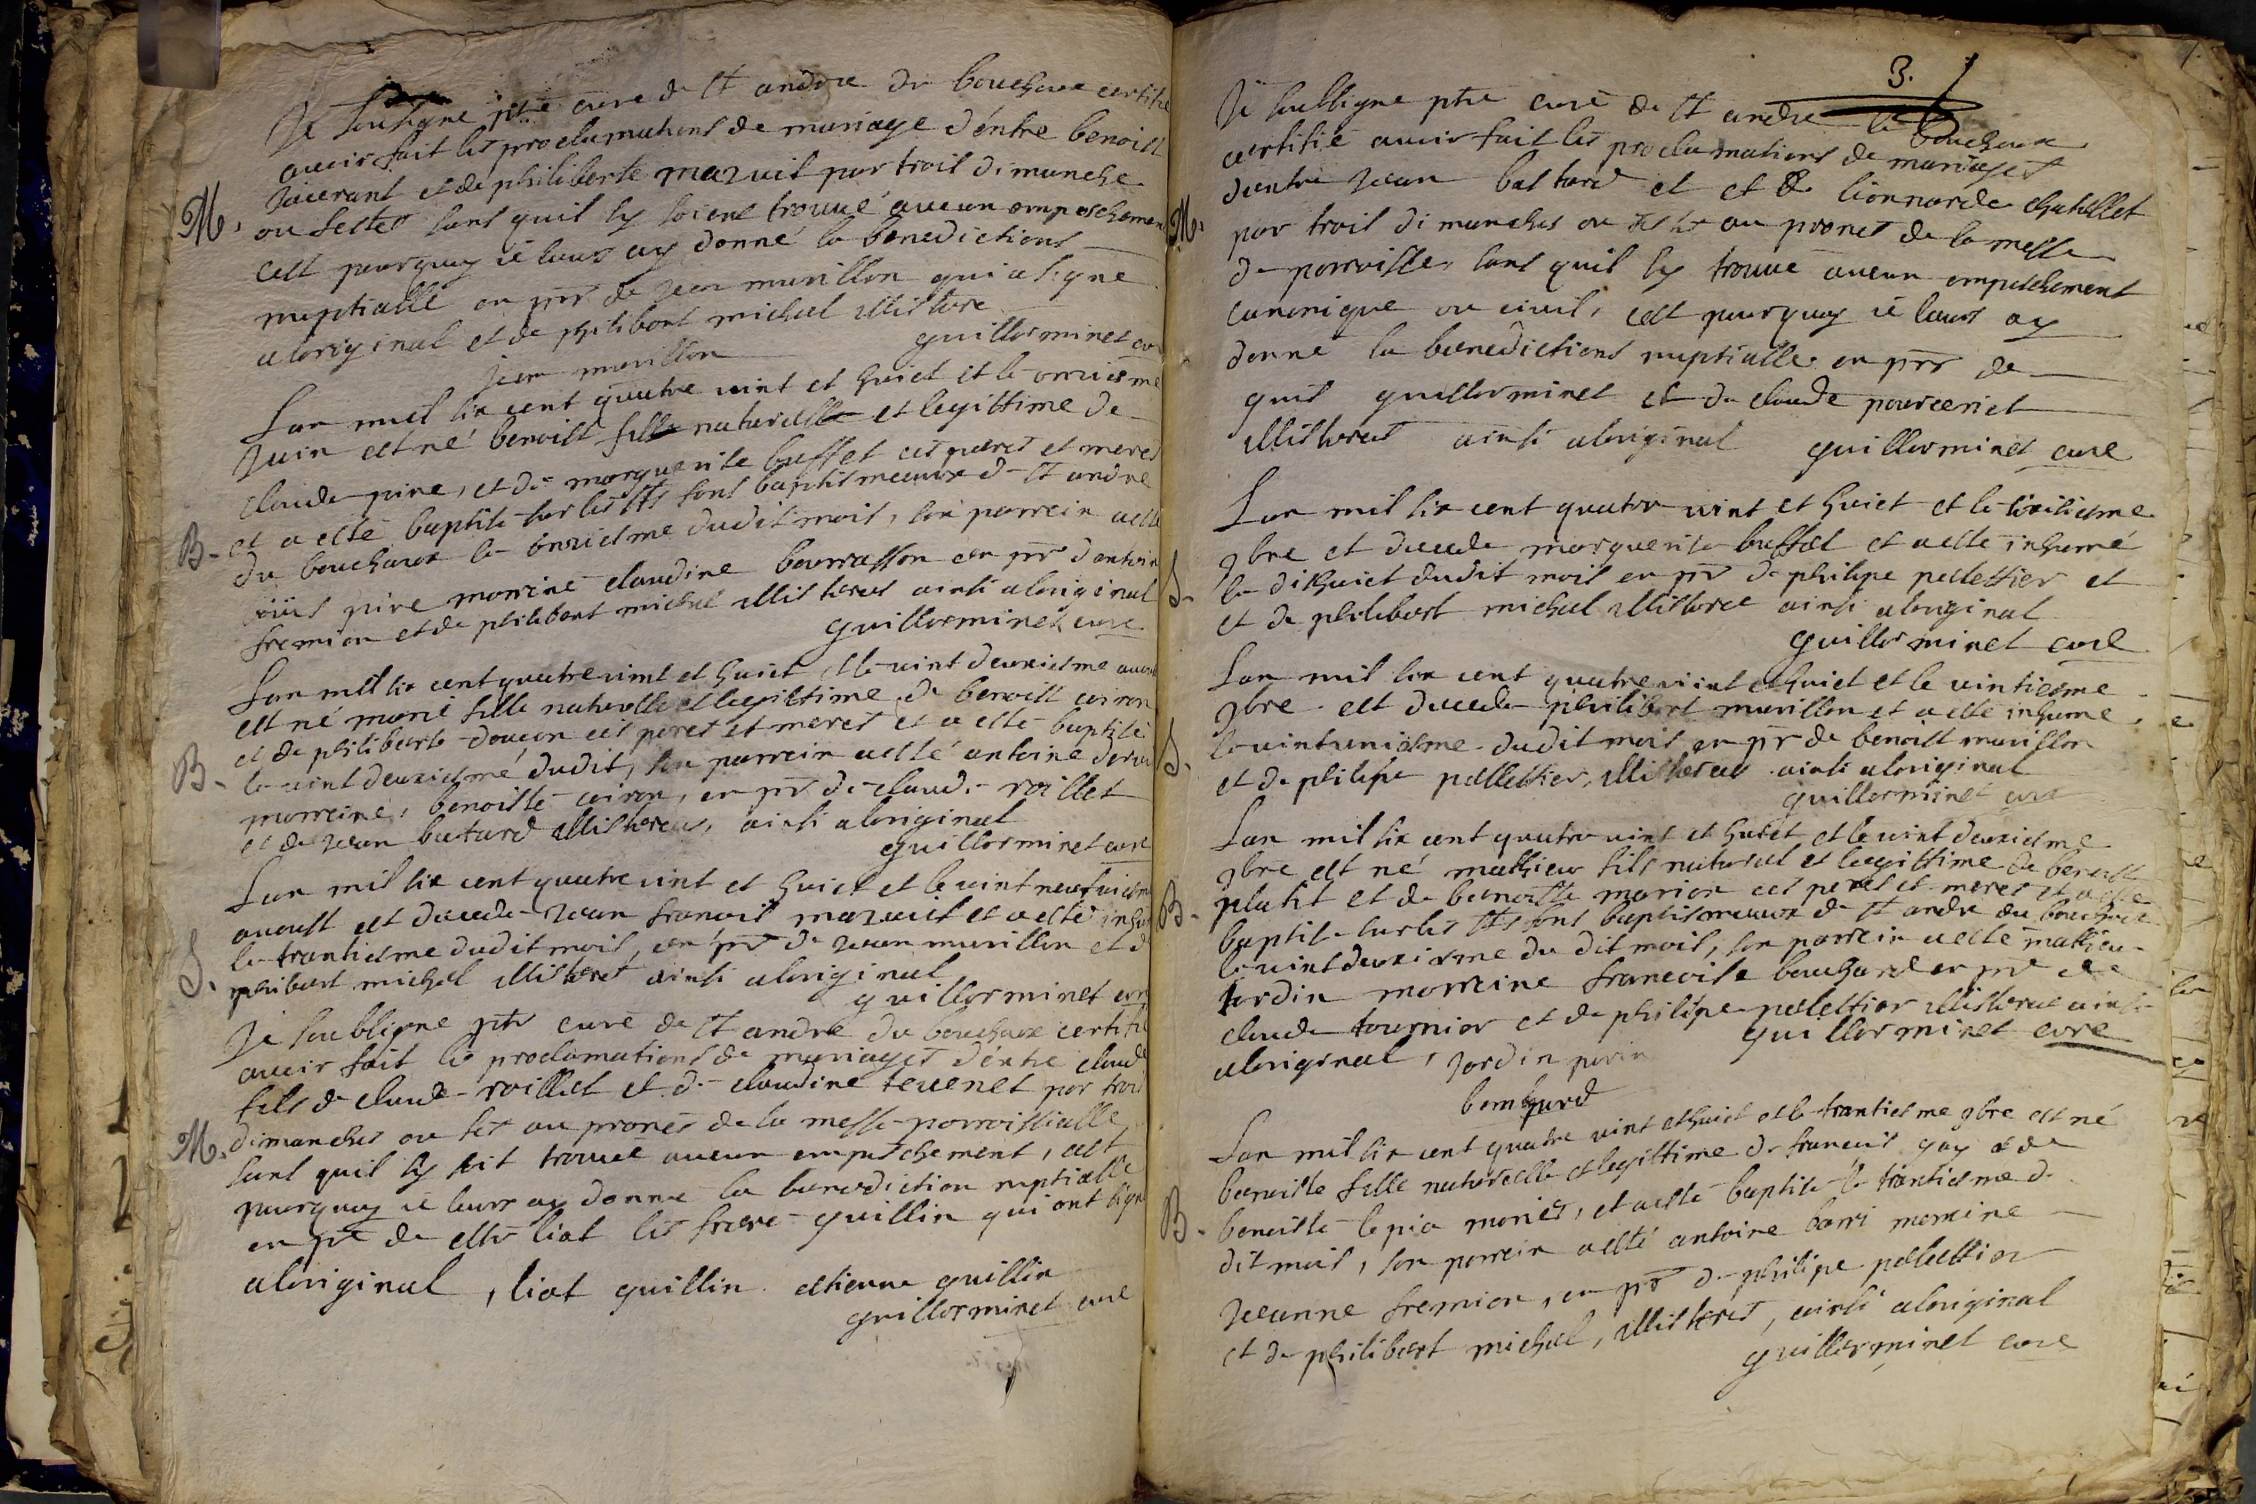 Je soubsigne ptre cure de St andre du bouchoux certifie
avoir fait les proclamations de mariage d'entre benoist
et de philiberte mazuit par trois dimanche
M. ou festes sans quil sy soient trouué aucun empeschemen
cest pourquoy ie leurs ay donné la benedictions
nuptialle en pnr de jean murillon qui a signe
aloriginal et de philibert michel illisteré
guillerminet cu
jean murillon
Lan mil six cent quatre uint et huict et le onziesme
Juin est né benoist fille naturelle et legittime de
claude pine, et de marguerite buffet ces peres et meres
B. et a esté baptisé sur les fons baptismeaux de St andre
du bouchoux le onziesme dudit mois, son parrein a esté
pine marrine claudine bourrasson en pnr d'antoine
fremion et de philibert michel illisteres ainsi aloriginal
guillerminet cure
Lan mil six cent quatre uint et huict et le uint deuxiesme aoust
est né marie fille naturelle et legittime de benoist coiron
et de philiberte doucon ces peres et meres et a esté baptisé
B. le uint deuxiesmé dudit, son parrein a esté antoine
marreine, benoiste coiron, en pnr de claude roillet
et de jean batard illisteres, ainsi aloriginal
guillerminet cure
Lan mil six cent quatre uint et huict et le uint neufuiesme
aoust est decede jean francois mazuit et a esté inhu
S. le trantiesme dudit mois, en pnr de jean murillon et de
philibert michel illisteres ainsi aloriginal
guillerminet cure
Je soubsigne ptre curé de St andre du bouchoux certifie
avoir fait les proclamations de mariages d'entre claude
fils de claude roillet et de claudine teuenet par trois
M. dimanches ou fes au pronés de la messe parroissialle
sans quil sy soit trouué aucun empeschement, cest
pourquoy ie leurs ay donné la benediction nuptialle
en pnr de liat les frere guillin qui ont signe
aloriginal, liat guillin etienne guillin
guillerminet cure
3.
Je soubsigne ptre curé de St andre le bouchoux
certifie avoir fait les proclamations de mariages
dentre jean bastard et et de lionnarde chatillet
M. par trois dimanches ou fes au prones de la messe
de parroisse, sans quil sy trouue aucun empeschement
canonique ou ciuil, cest pourquoy ie leurs ay
donné la benedictions nuptialle en pnr de
guillerminet et de claude pourceriet
illisteres ainsi aloriginal guillerminet cure
Lan mil six cent quatre uint et huict et le
9bre et decede marguerite buffet et a esté inhumé
S. le dishuict dudit mois en pnr de philipe pellettier et
et de philibert michel illisteres ainsi aloriginal
guillerminet cure
Lan mil six cent quatre uint et huict et le uintiesme
9bre est decede philibert murillon et a esté inhume
S. le uintuniesme dudit mois en pnr de benoist murillon
et de philipe pellettier, illisteres ainsi aloriginal
guillerminet cure
Lan mil six cent quatre uint et huict et le uint deuxiesme
9bre est né mathieu fils naturel et legittime de benoist
B. platit et de benoitte marion ces peres et meres et a esté
baptise sur les fons baptismeaux de St andre du bouchoux
le uint deuxiesme du dit mois, son parrein a esté mathieu
jordin marreine francoise bouchard en pnr de
claude tournier et de philipe pellettier illisteres ainsi
aloriginal, jordin parin guillerminet cure
bombard
Lan mil six cent quatre uint et huict et le trantiesme 9bre est né
benoiste fille naturelle et legittime de francois gay et de
B. benoiste lepia mariés, et a esté baptise le trantiesme du
dit mois, son parrein a esté antoine barri marreine
jeanne fremion, en pnr de philipe pellettier
et de philibert michel, illisteres, ainsi aloriginal
guillerminet cure